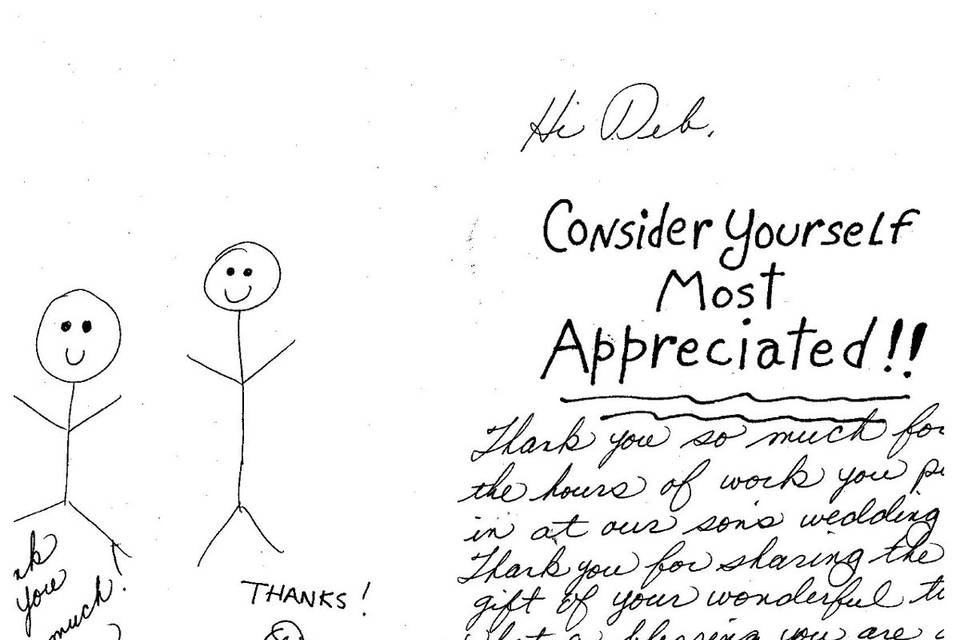 Hi Deb,
Consider Yourself
Most
Appreciated!!
Thank you so much for
the hours of work you
in at our son's wedding
Thank you for sharing the
gift of your wonderful
what a blessing you are
you
much!
THANKS!